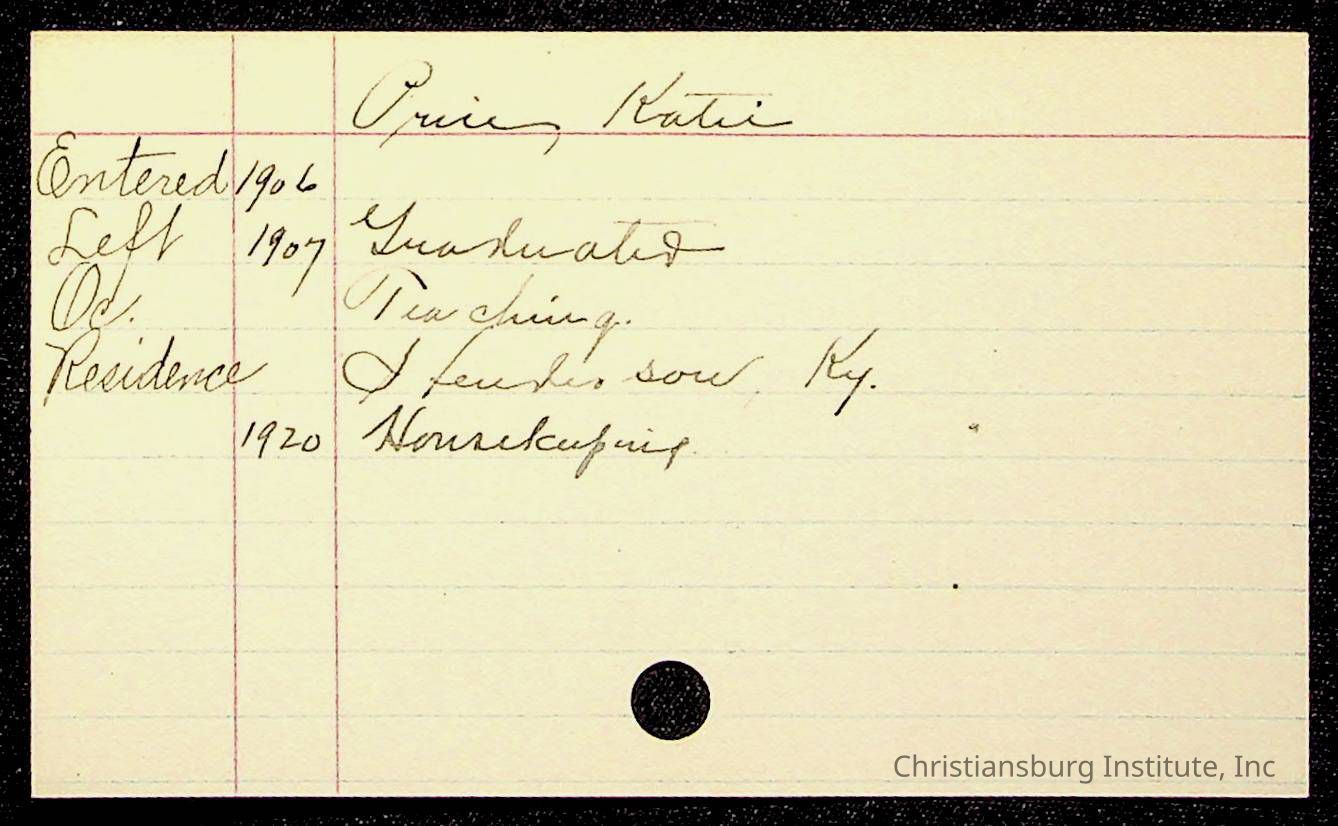 Price, Katie
Entered 1906
Left 1907 Graduated
Oc. Teaching.
Residence Henderson, Ky.
1920 Housekeeping
Christiansburg Institute, Inc